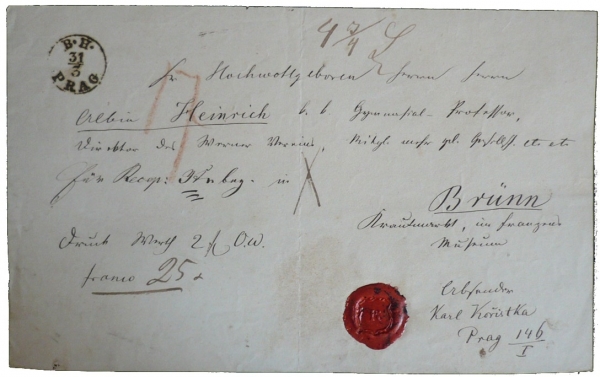 B.H.
31
3
PRAG
17
Sr Hochwohlgeboren Herrn Herrn
Albin Heinrich k. k. Gymnasial-Professor,
Direktor des Werner Vereins, Mitgl. mehr gel. Gesellsch. etc etc
für Recep: in
Brünn
Krautmarkt, im Franzens
Museum
Druck Werth 2 f O.W.
franco 25
Absender
Karl Kořistka
Prag 146
I